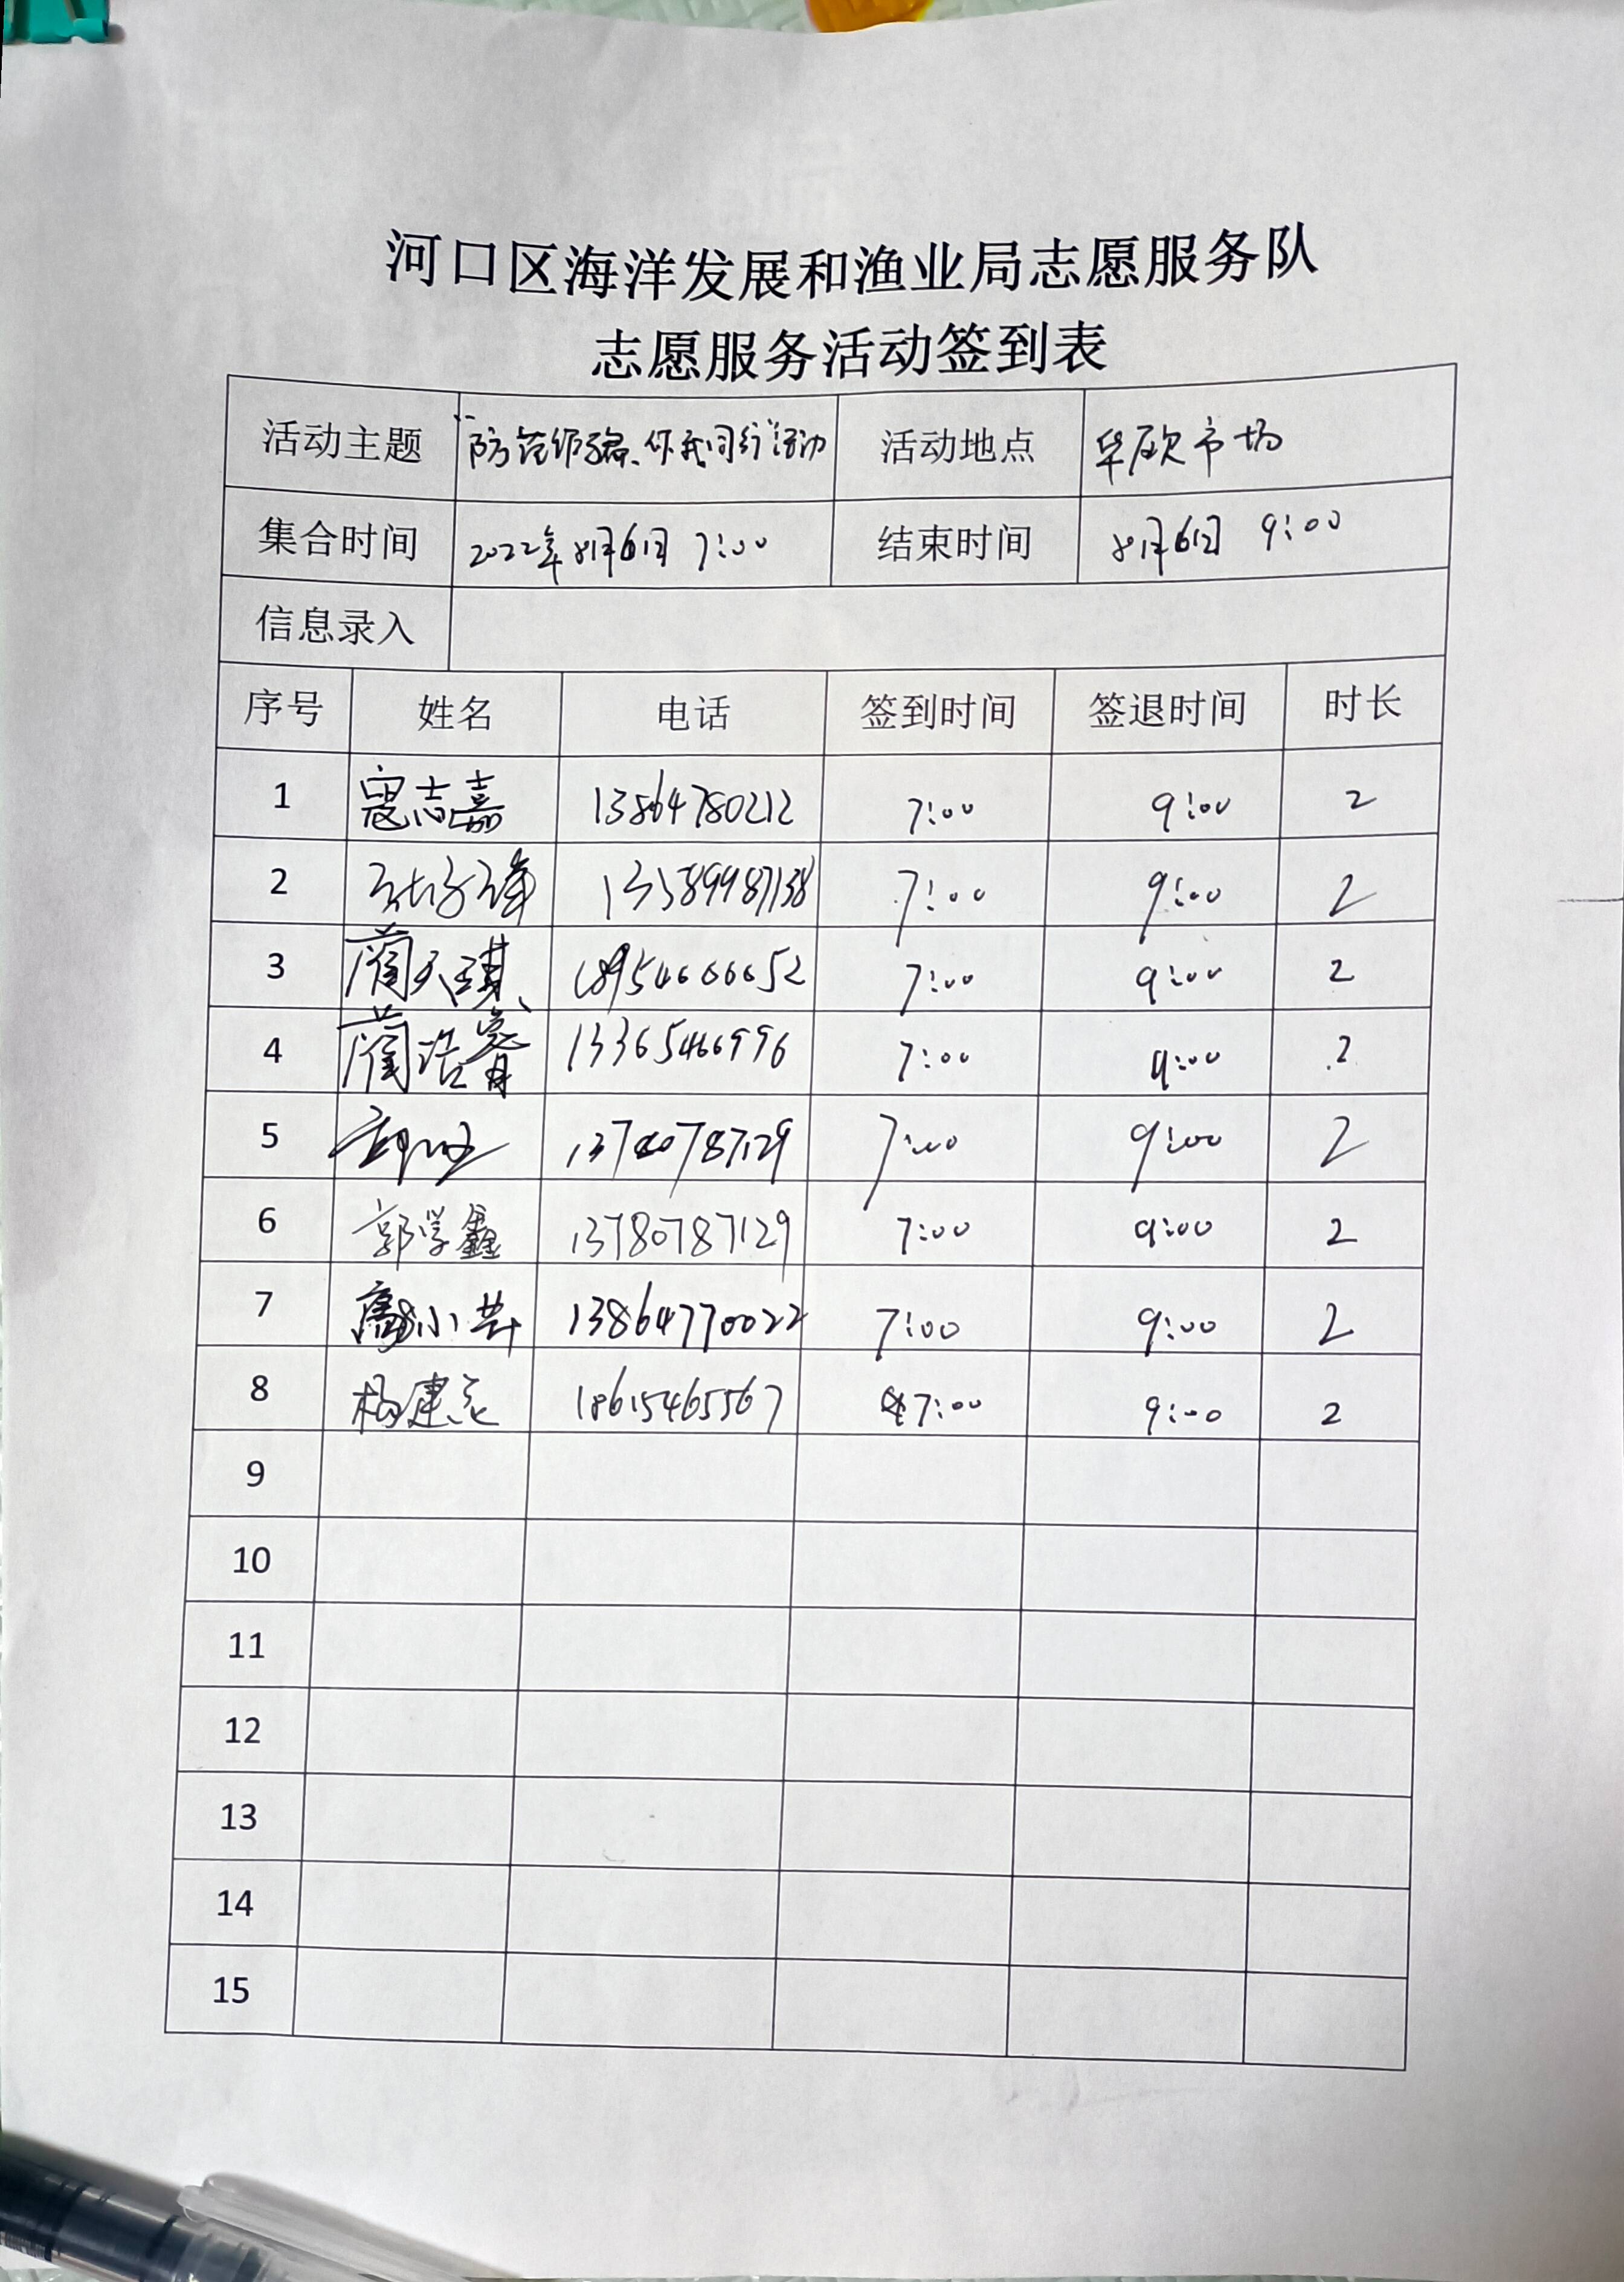 河口区海洋发展和渔业局志愿服务队
志愿服务活动签到表
活动主题 “防范诈骗、你我同行”活动 活动地点 华欣市场
集合时间 2022年8月6日 7:00 结束时间 8月6日 9:00
信息录入
序号 姓名 电话 签到时间 签退时间 时长
1 寇志嘉 13864780212 7:00 9:00 2
2 7:00 9:00 2
3 蔺天琪 18954666652 7:00 9:00 2
4 蔺浩睿 13365466996 7:00 9:00 2
5 7:00 9:00 2
6 郭学鑫 13780787129 7:00 9:00 2
7 小芸 13864770022 7:00 9:00 2
8 杨建 18615465567 7:00 9:00 2
9
10
11
12
13
14
15